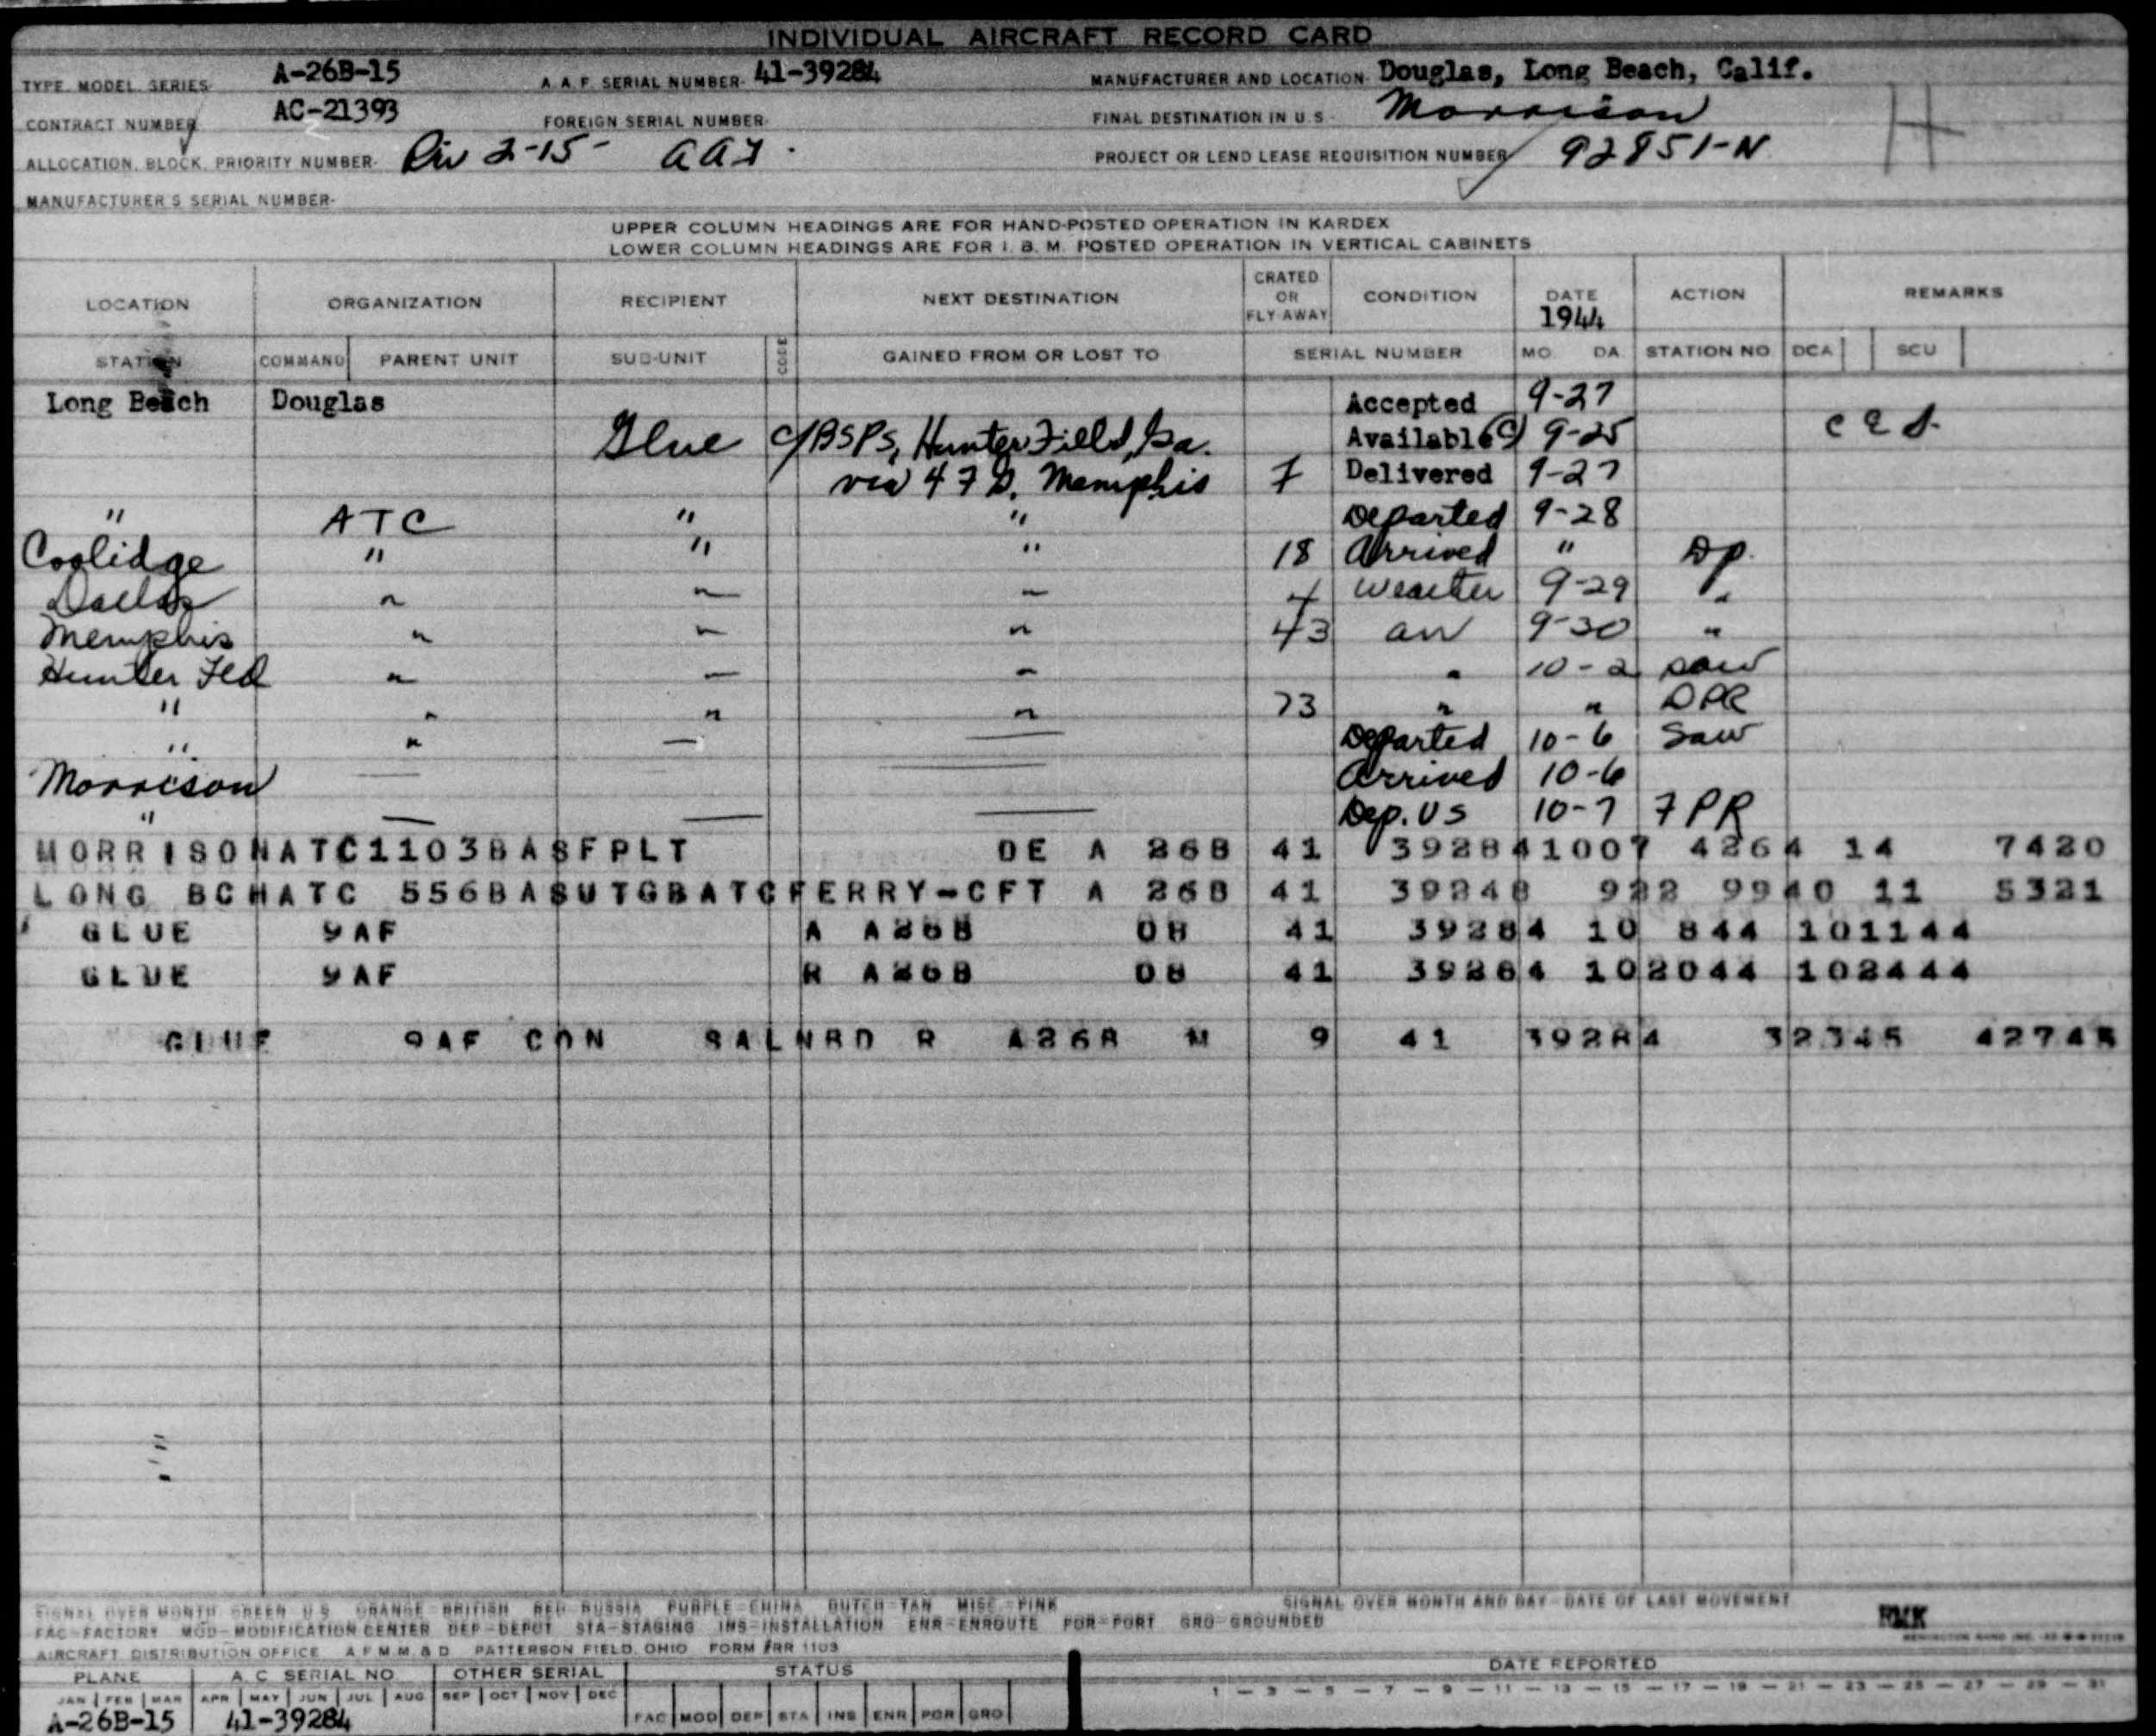 INDIVIDUAL AIRCRAFT RECORD CARD
TYPE MODEL SERIES- A-26B-15 A.A.F. SERIAL NUMBER- 41-39284 MANUFACTURER AND LOCATION- Douglas, Long Beach, Calif.
CONTRACT NUMBER AC-21393 FOREIGN SERIAL NUMBER- FINAL DESTINATION IN U.S.- Morrison H
ALLOCATION, BLOCK, PRIORITY NUMBER- 2-15- PROJECT OR LEND LEASE REQUISITION NUMBER 92851-N
MANUFACTURER'S SERIAL NUMBER-
UPPER COLUMN HEADINGS ARE FOR HAND-POSTED OPERATION IN KARDEX
LOWER COLUMN HEADINGS ARE FOR I.B.M. POSTED OPERATION IN VERTICAL CABINETS
LOCATION ORGANIZATION RECIPIENT NEXT DESTINATION CRATED OR FLY-AWAY CONDITION DATE 1944 ACTION REMARKS
STATION COMMAND PARENT UNIT SUB-UNIT CODE GAINED FROM OR LOST TO SERIAL NUMBER MO. DA. STATION NO DCA SCU
Long Beach Douglas Accepted 9-27
Glue c/BSPS, Hunter Field, Ga. Available 9-25
via 47 D. Memphis 7 Delivered 9-27
" ATC " " Departed 9-28
Coolidge " " " 18 Arrived " DP.
Dallas " " " 4 Weather 9-29 "
Memphis " " " 43 arr 9-30 "
Hunter Fld " " " " 10-2 saw
" " " " 23 " " DPR
" " — — Departed 10-6 Saw
Morrison — — — Arrived 10-6
" — — — Dep. US 10-7 7PR
MORRISONATC1103BASFPLT DE A 26B 41 392841007 4264 14 7420
LONG BCHATC 556BASUTGBATCFERRY-CFT A 26B 41 39248 922 9940 11 5321
GLUE 9AF A A26B 08 41 39284 10 844 101144
GLUE 9AF R A26B 08 41 39284 102044 102444
GLUE 9AF CON SALNBD R A26B M 9 41 39284 32345 42745
SIGNAL OVER MONTH GREEN U.S. ORANGE=BRITISH RED RUSSIA PURPLE=CHINA DUTCH=TAN MISC.=PINK SIGNAL OVER MONTH AND DAY-DATE OF LAST MOVEMENT
FAC=FACTORY MOD=MODIFICATION CENTER DEP=DEPOT STA=STAGING INS=INSTALLATION ENR=ENROUTE POR=PORT GRO=GROUNDED
AIRCRAFT DISTRIBUTION OFFICE A F M M & D PATTERSON FIELD, OHIO FORM #RR 1103
PLANE A.C SERIAL NO. OTHER SERIAL STATUS DATE REPORTED
JAN FEB MAR APR MAY JUN JUL AUG SEP OCT NOV DEC FAC MOD DEP STA INS ENR POR GRO 1 — 3 — 5 — 7 — 9 — 11 — 13 — 15 — 17 — 19 — 21 — 23 — 25 — 27 — 29 — 31
A-26B-15 41-39284